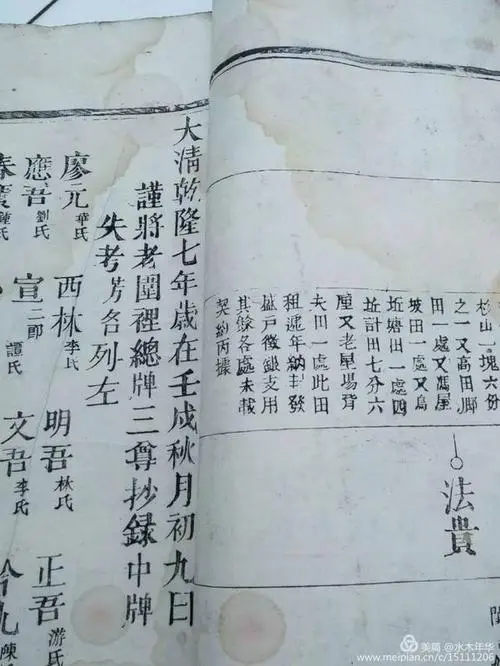 杉山一塊六份
之一又高田腳
田一處又馮屋
坡田一處又烏
坵塘田一處四
坵計田七分六
厘又老屋場背
夫田一處此田
租遞年納主發
益戶徵銀支用
其餘各處未載
契約丙據
法貴
大清乾隆七年歲在壬戌秋月初九日
謹將老圍裡總牌三尊抄錄中牌
失考芳名列左
廖元華氏 西林李氏 明吾林氏 正吾游氏
應吾劉氏 宣二郎譚氏 文吾李氏
鍾氏
美篇 @水木年华
www.meipian.cn/c/15111206